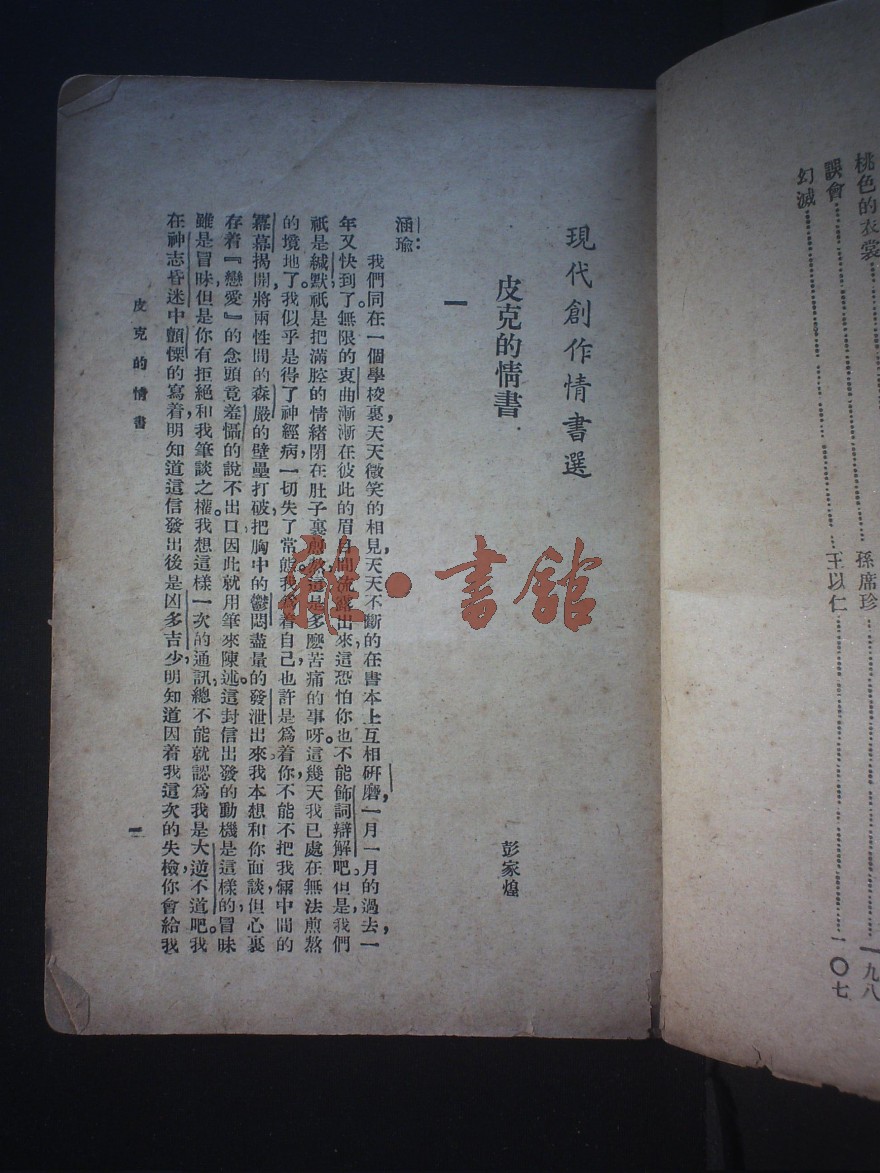 桃色的衣裳 孫席珍 九八
誤會 王以仁 一〇七
幻滅
現代創作情書選
皮克的情書
彭家煌
一
涵瑜:
我們同在一個學校裏,天天微笑的相見,天天不斷的在書本上互相研磨,一月一月的過去,一
年又快到了。無限的衷曲漸漸在彼此的眉目間流露出來,這恐怕你也不能飾詞辯解吧。但是,我們
祇是緘默,祇是把滿腔的情緒閉在肚子裏煎熬,這是多麼苦痛的事呀。這幾天我已處在無法煎熬
的境地了。我似乎是得了神經病,一切失了常態。我爲着自己,也許是爲着你,不能不把我倆中間的
冪幕揭開,將兩性間的森嚴的壁壘打破,把胸中的鬱悶盡量的發泄出來。我本想和你面談,但心裏
存着『戀愛』的念頭,竟羞懾的說不出口,因此就用筆來陳述。這封信出發的動機是這樣的,冒昧
雖是冒昧,但是你有拒絕和我筆談之權。我想這樣一次的通訊,總不能就認爲我是大逆不道吧。我
在神志昏迷中顫慄的寫着,明知道這信發出後是凶多吉少,明知道因着我這次的失檢,你會給我
皮克的情書
一
雜·書舘